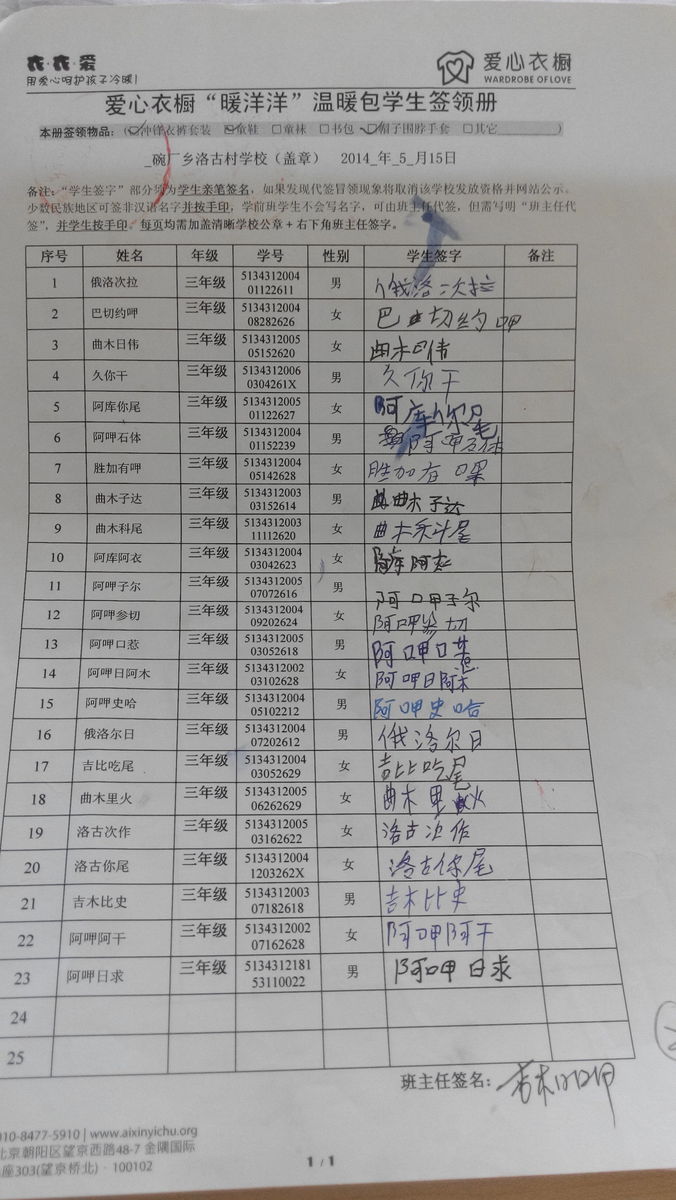 衣·衣·爱
用爱心呵护孩子冷暖!
爱心衣橱
WARDROBE OF LOVE
爱心衣橱“暖洋洋”温暖包学生签领册
本册签领物品：(☑冲锋衣裤套装 ☑童鞋 □童袜 □书包 ☑帽子围脖手套 □其它________)
_碗厂乡洛古村学校（盖章） 2014_年_5_月15日
备注：“学生签字”部分须为学生亲笔签名，如果发现代签冒领现象将取消该学校发放资格并网站公示。
少数民族地区可签非汉语名字并按手印，学前班学生不会写名字，可由班主任代签，但需写明“班主任代
签”，并学生按手印。每页均需加盖清晰学校公章+右下角班主任签字。
序号 姓名 年级 学号 性别 学生签字 备注
1 俄洛次拉 三年级 513431200401122611 男 俄洛次拉
2 巴切约呷 三年级 513431200408282626 女 巴切约呷
3 曲木日伟 三年级 513431200505152620 女 曲木日伟
4 久你干 三年级 51343120060304261X 男 久你干
5 阿库你尾 三年级 513431200501122627 女 阿库你尾
6 阿呷石体 三年级 513431200401152239 男 阿呷石体
7 胜加有呷 三年级 513431200405142628 女 胜加有
8 曲木子达 三年级 513431200303152614 男 曲木子达
9 曲木科尾 三年级 513431200311112620 女 曲木科尾
10 阿库阿衣 三年级 513431200403042623 女 阿库阿衣
11 阿呷子尔 三年级 513431200507072616 男 阿呷子尔
12 阿呷参切 三年级 513431200409202624 女 阿呷参切
13 阿呷口惹 三年级 513431200503052618 男 阿呷口惹
14 阿呷日阿木 三年级 513431200203102628 女 阿呷日阿木
15 阿呷史哈 三年级 513431200405102212 男 阿呷史哈
16 俄洛尔日 三年级 513431200407202612 男 俄洛尔日
17 吉比吃尾 三年级 513431200403052629 女 吉比吃尾
18 曲木里火 三年级 513431200506262629 女 曲木里火
19 洛古次作 三年级 513431200503162622 女 洛古次作
20 洛古你尾 三年级 51343120041203262X 女 洛古你尾
21 吉木比史 三年级 513431200307182618 男 吉木比史
22 阿呷阿干 三年级 513431200207162628 女 阿呷阿干
23 阿呷日求 三年级 513431218153110022 男 阿呷日求
24
25
班主任签名：
010-8477-5910 | www.aixinyichu.org
北京朝阳区望京西路48-7 金隅国际
座303(望京桥北) · 100102
1 / 1